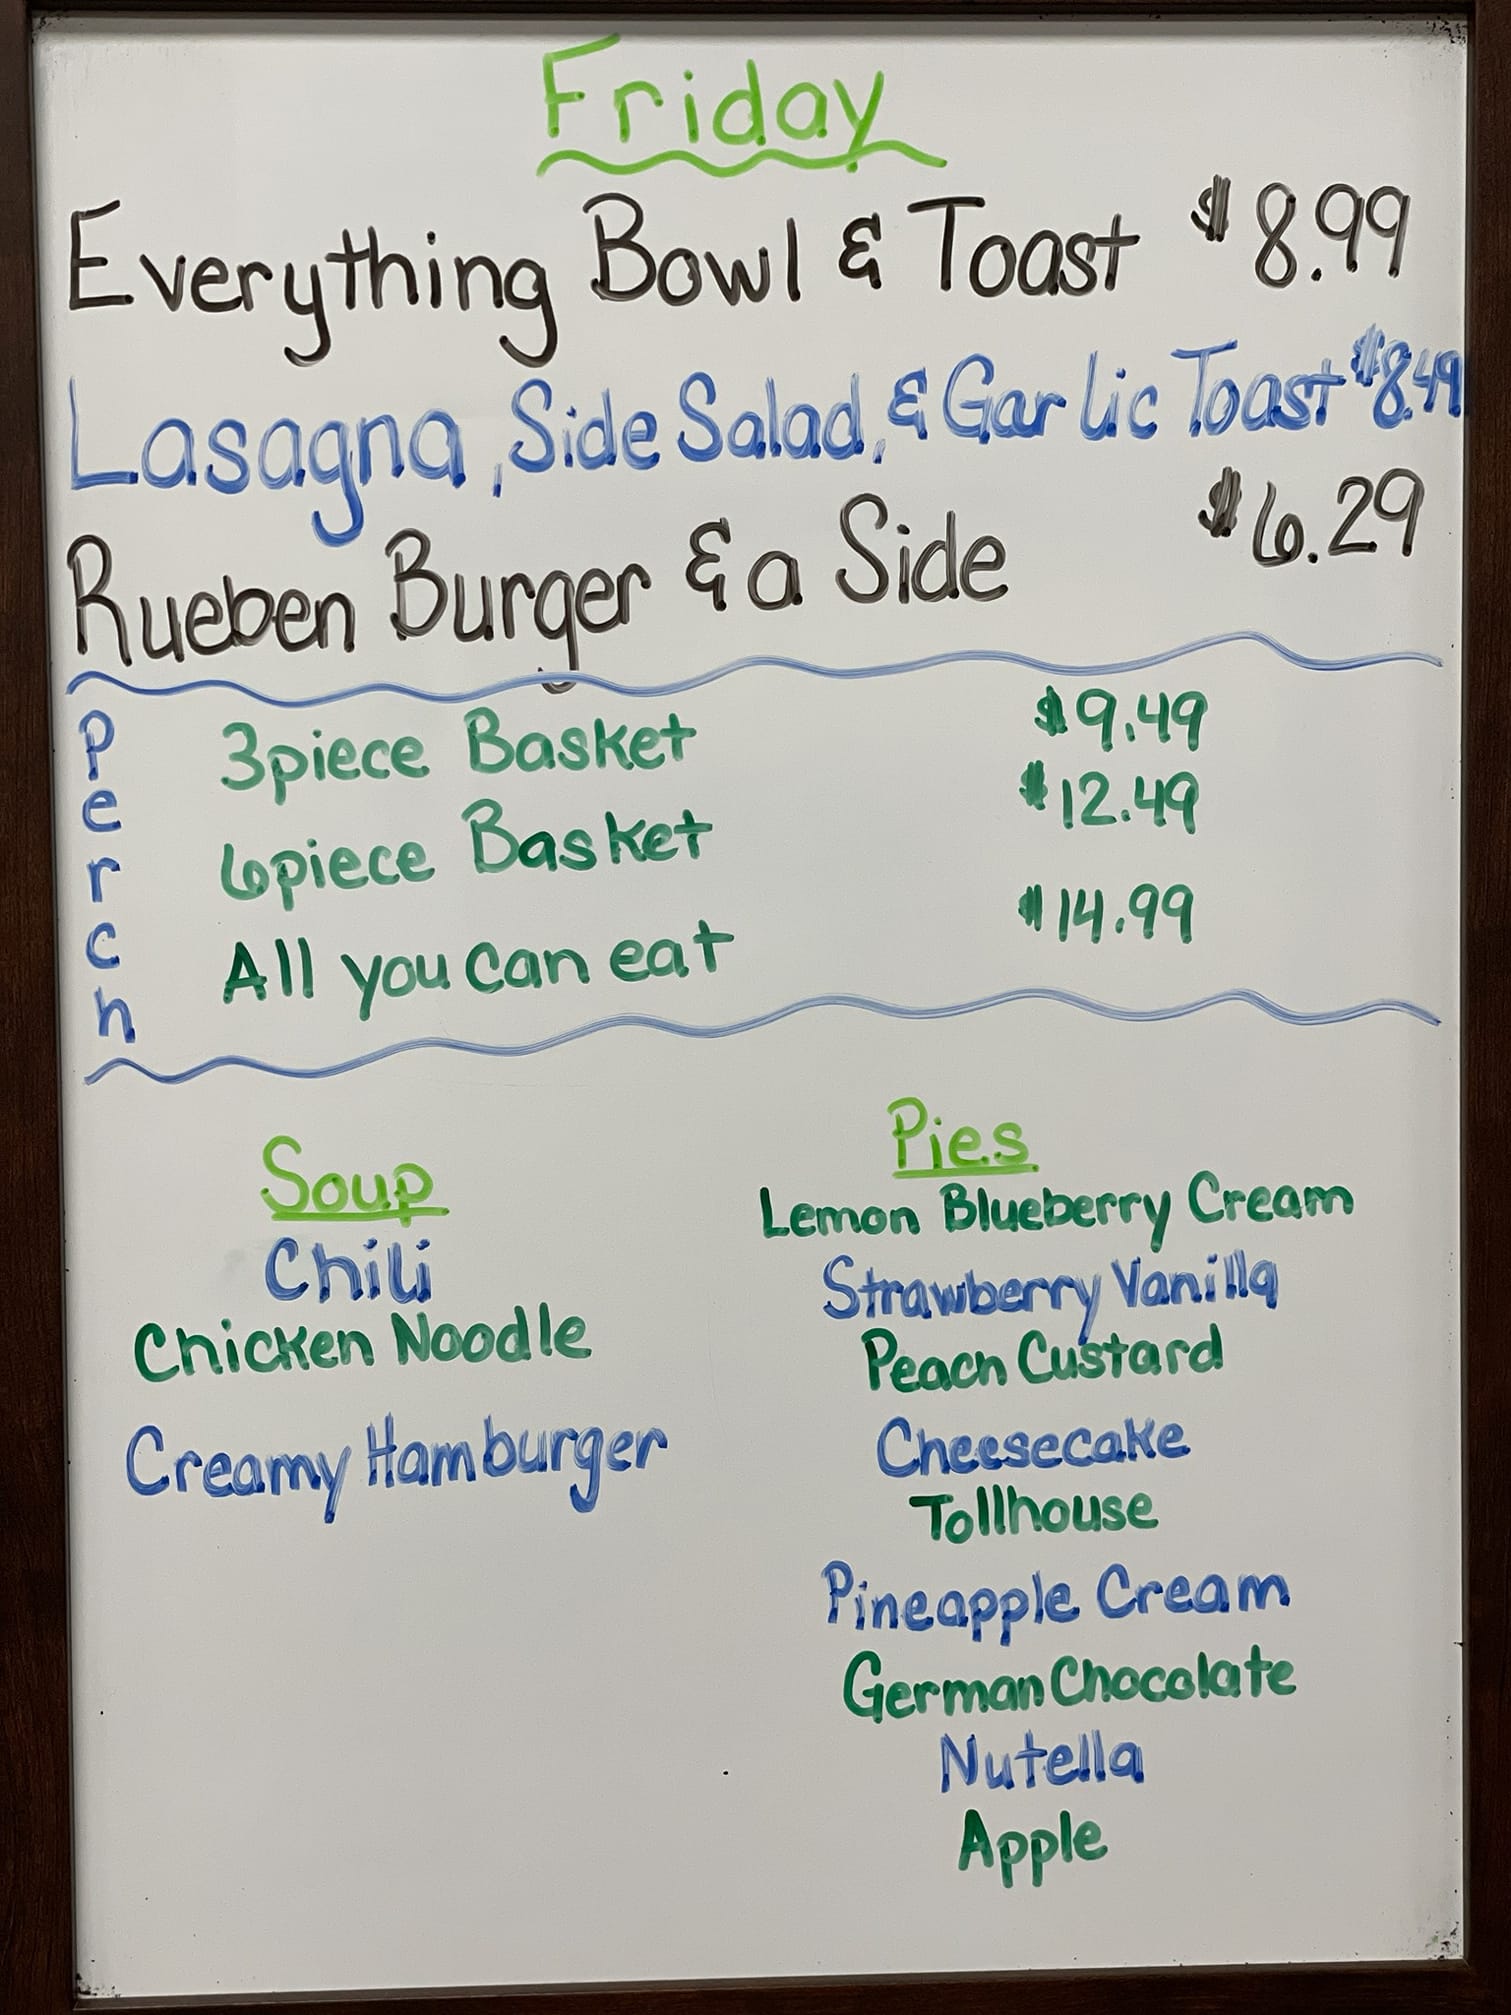 Friday
Everything Bowl & Toast $8.99
Lasagna, Side Salad, & Garlic Toast $8.49
Rueben Burger & a Side $6.29
Perch
3piece Basket $9.49
6piece Basket $12.49
All you can eat $14.99
Soup
Chili
Chicken Noodle
Creamy Hamburger
Pies
Lemon Blueberry Cream
Strawberry Vanilla
Peach Custard
Cheesecake
Tollhouse
Pineapple Cream
German Chocolate
Nutella
Apple